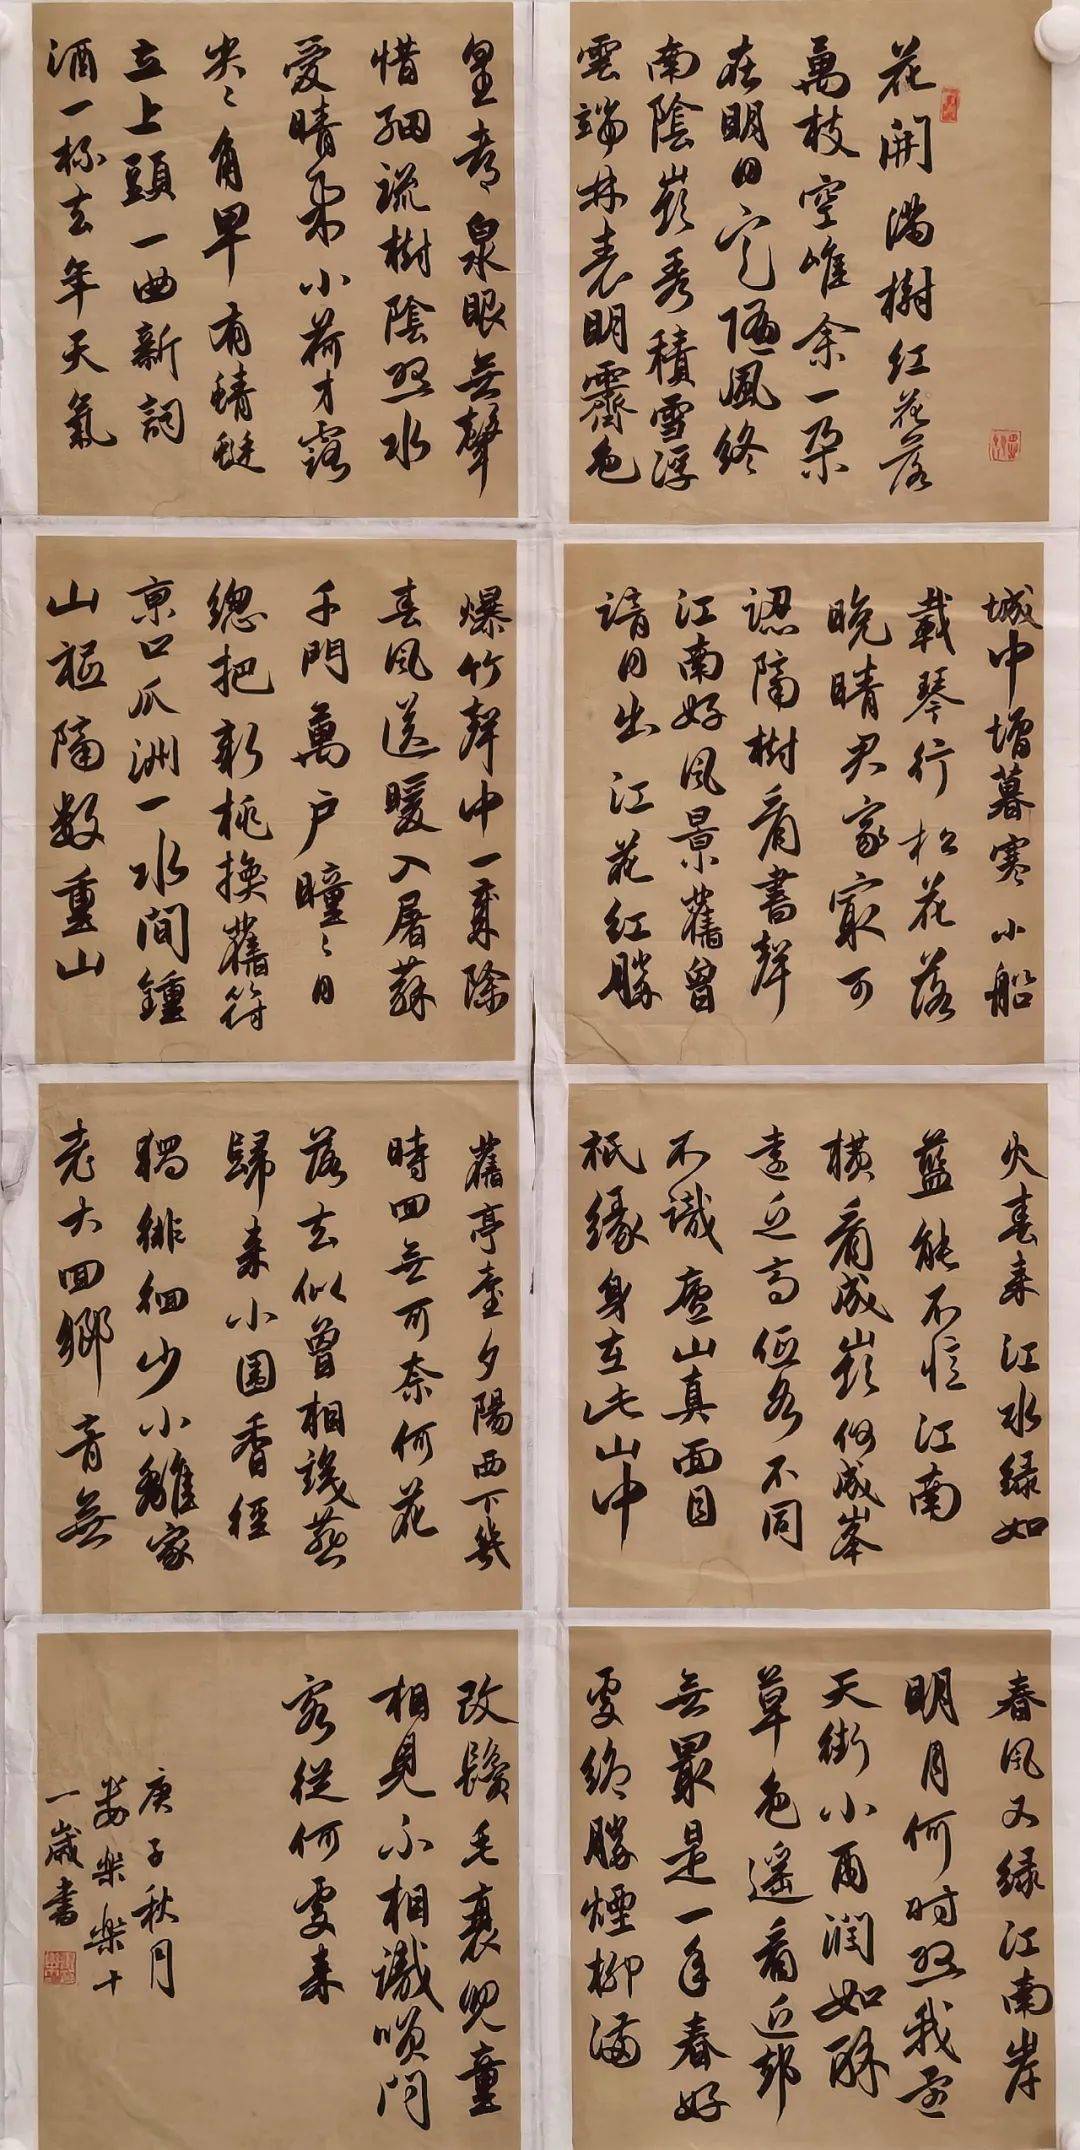 花開滿樹红花落
萬枝空唯余一朵
在明日定隨風終
南陰嶺秀積雪浮
雲端林表明霽色
城中增暮寒小船
載琴行松花落
晚晴君家最可
認隔樹看書聲
江南好風景舊曾
諳日出江花红勝
火春来江水緑如
藍能不憶江南
横看成嶺側成峯
遠近高低各不同
不識廬山真面目
祇緣身在此山中
爆竹聲中一歲除
春風送暖入屠蘇
千門萬户曈〻日
總把新桃换舊符
京口瓜洲一水間鍾
山祗隔數重山
春風又緑江南岸
明月何时照我還
天街小雨潤如酥
草色遥看近却
無最是一年春好
處絶勝煙柳滿
皇都泉眼無聲
惜細流樹陰照水
愛晴柔小荷才露
尖〻角早有蜻蜓
立上頭一曲新詞
酒一杯去年天氣
舊亭臺夕陽西下幾
時回無可奈何花
落去似曾相識燕
歸来小園香徑
獨徘徊少小離家
老大回鄉音無
改鬢毛衰兒童
相見不相識笑問
客從何處来
庚子秋月
婁樂樂十
一歲書